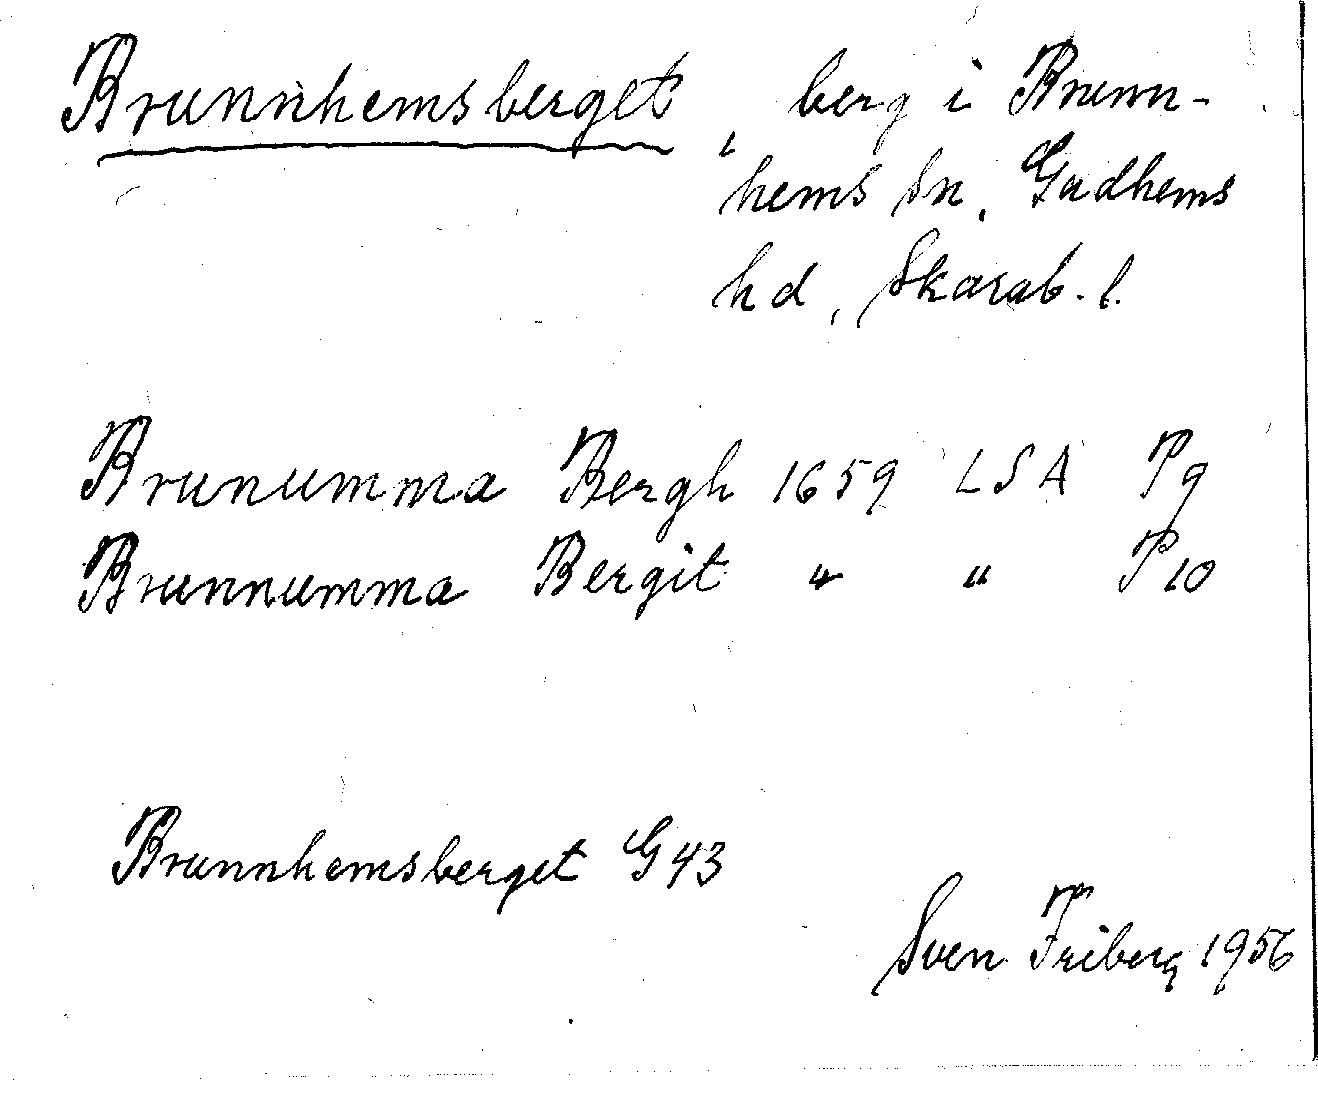 Brunnhemsberget, berg i Brunn-
hems sn, Gudhems
hd, Skarab. l.
Brunumma Bergh 1659 LSA P9
Brunnumma Bergit " " P10
Brunnhemsberget G43
Sven Friberg 1956